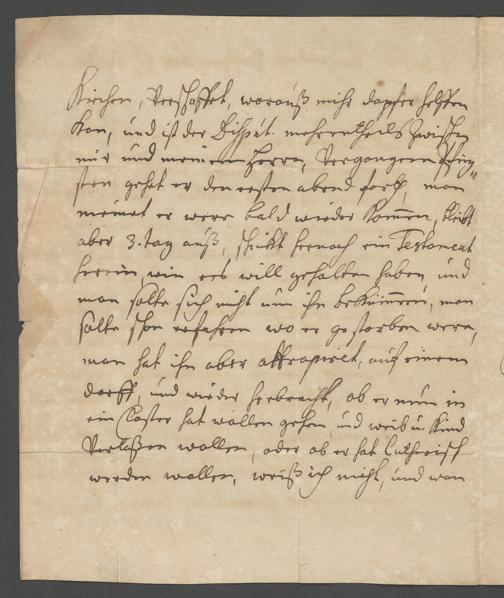 Kirchen, verschaffet, worauß mihr dapfer helffen
kan, und ist der Disput mehrentheils zwischen
mir und meinem Herrn, vergangen Pfing=
sten gehet er den ersten abend fort, man
meinet er were bald wieder kommen, bleibt
aber 3. tag auß, schickt hernach ein Testament
herein, wie ers will gehalten haben, und
man solte sich nicht um ihn bekümmern, man
solte schon erfahren wo er gestorben were,
man hat ihn aber attrapiret, auf einem
dorff, und wieder herbracht, ob er nun in
ein Closter hat wollen gehen, und weib u. Kind
verlaßen wollen, oder ob er hat lutherisch
werden wollen, weiß ich nicht, und wan